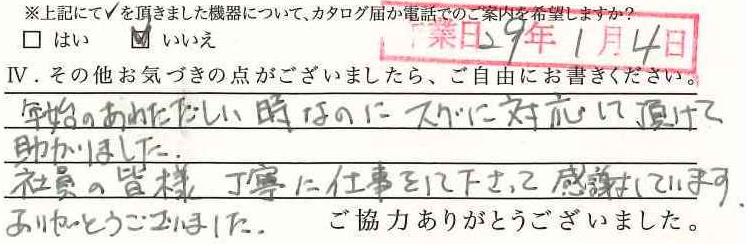 ※上記にて✓を頂きました機器について、カタログ届か電話でのご案内を希望しますか?
□ はい ☑ いいえ
業日29年1月4日
Ⅳ．その他お気づきの点がございましたら、ご自由にお書きください。
年始のあわただしい時なのに スグに対応して頂けて
助かりました.
社員の皆様 丁寧に仕事をして下さって 感謝しています.
ありがとうございました.
ご協力ありがとうございました。